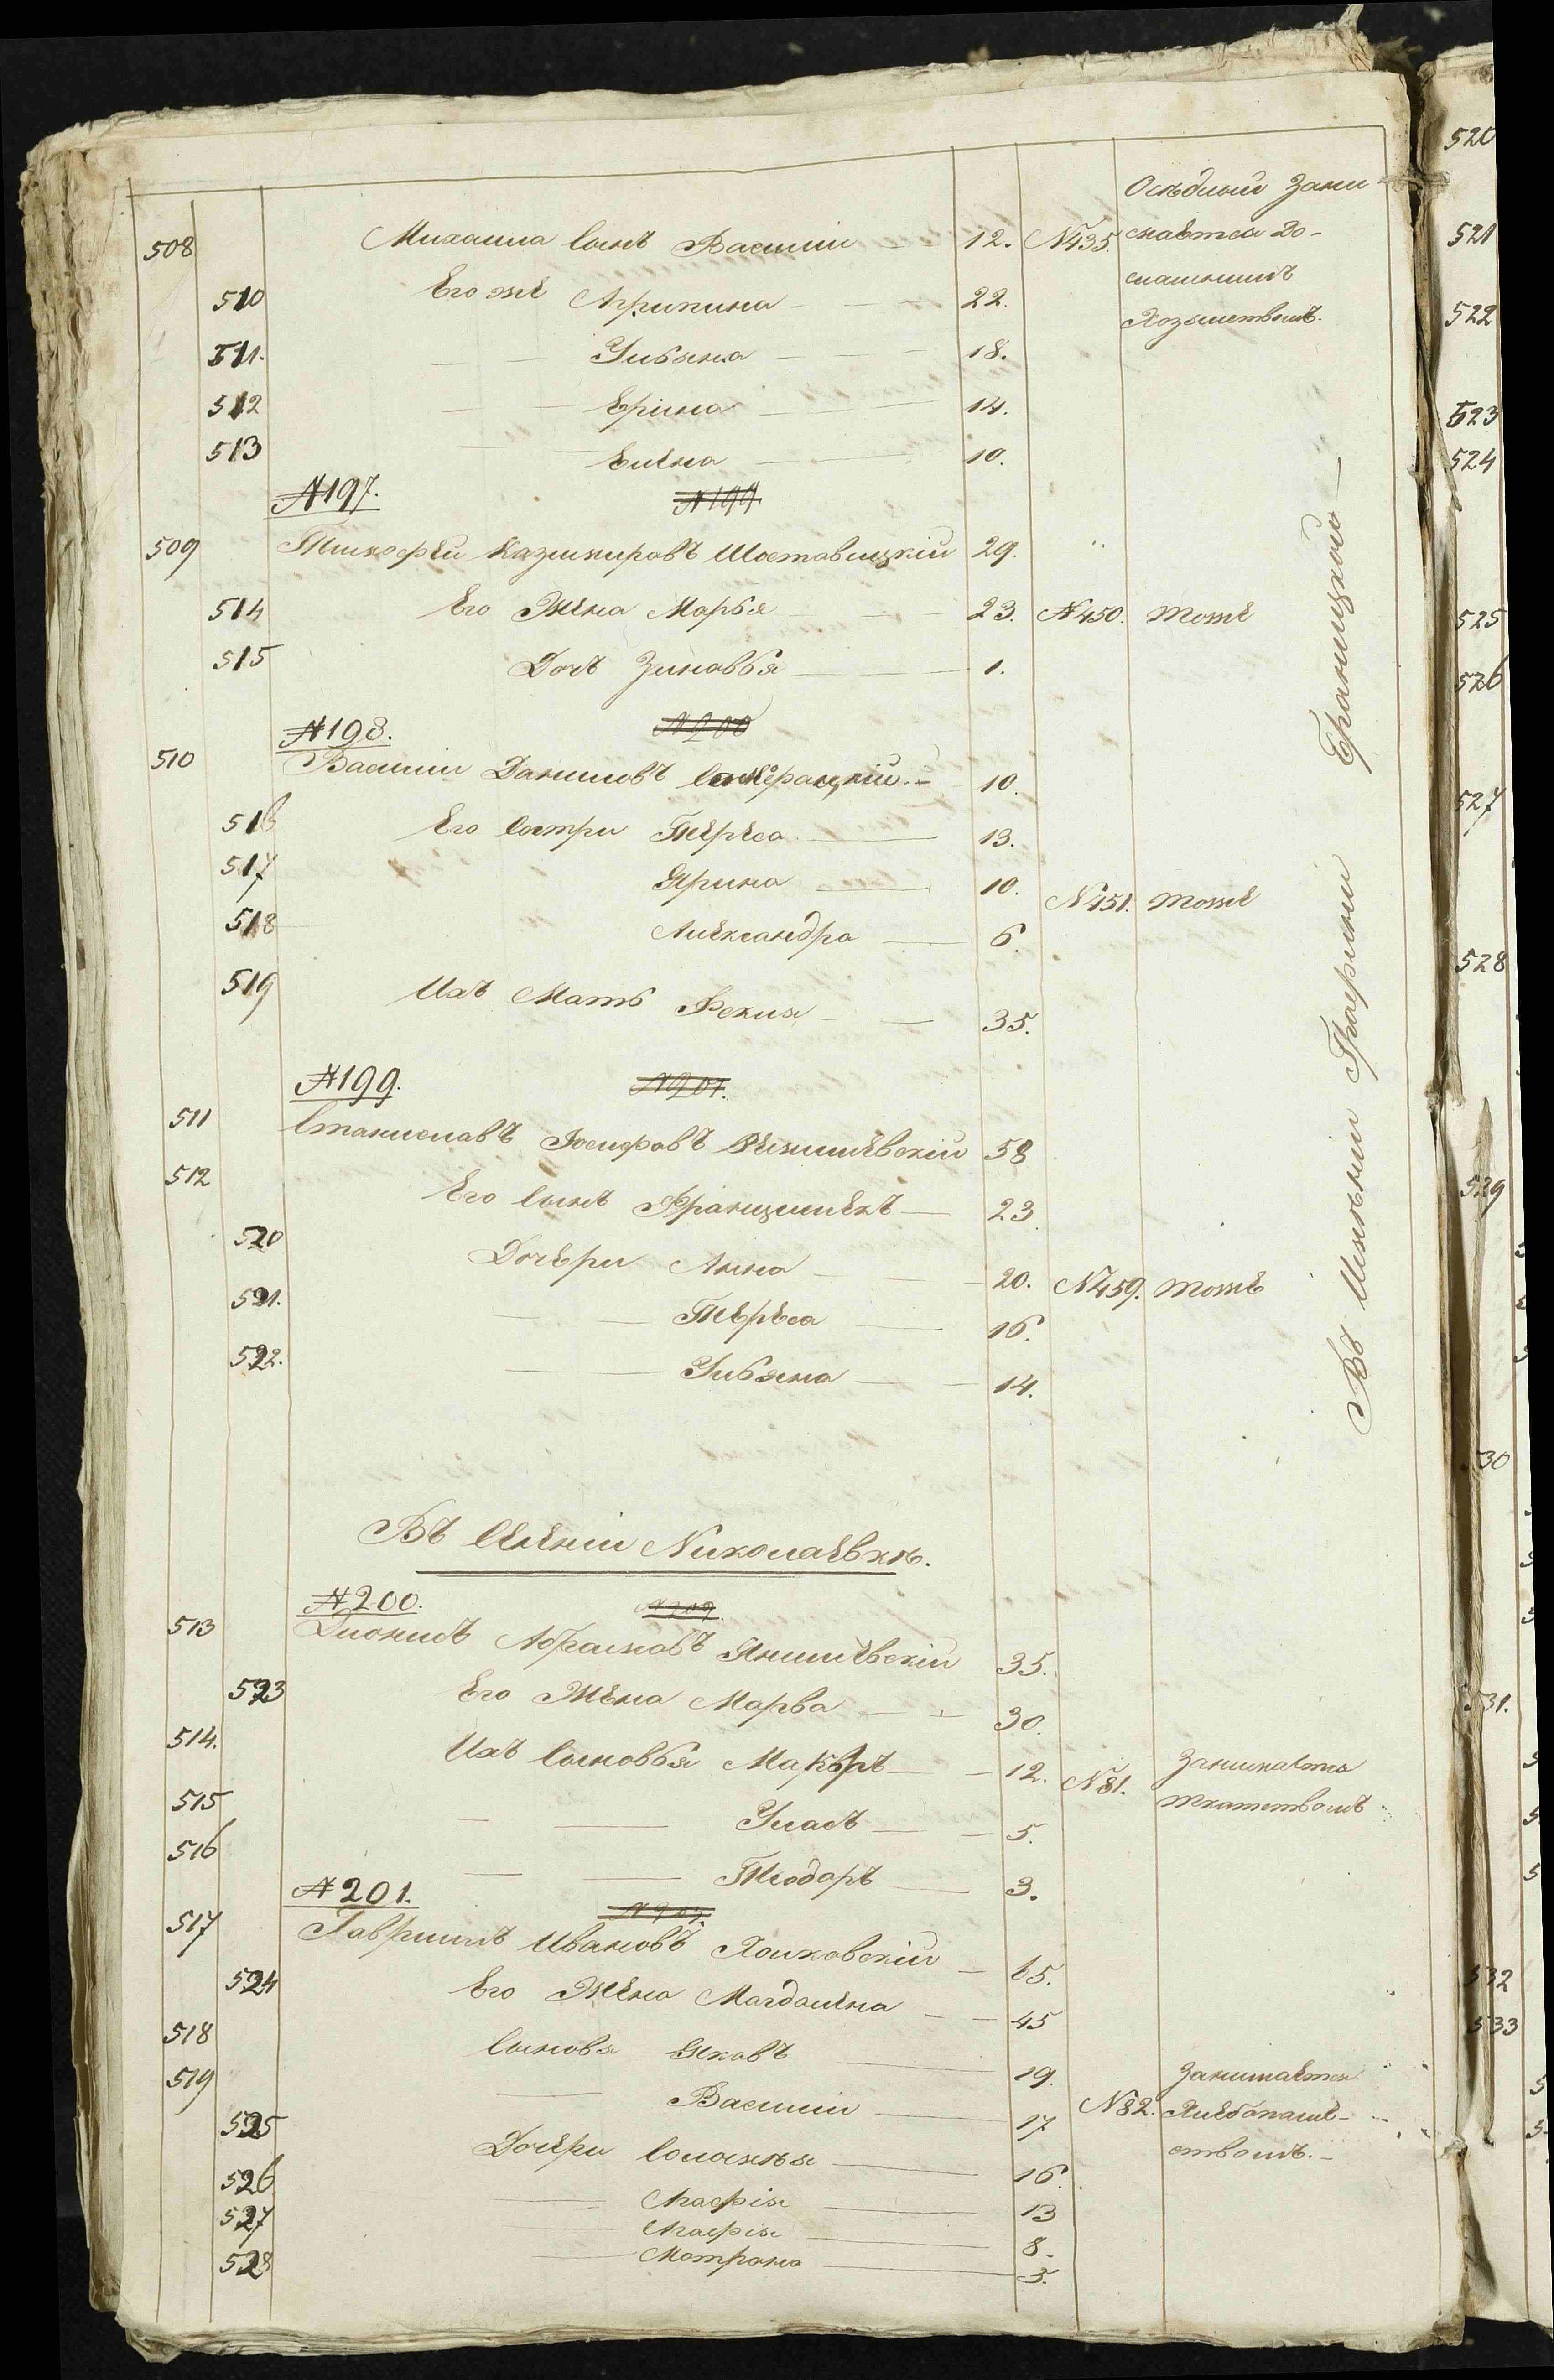 Осѣдлый Зани
508 Михаила Сынъ Василій 12. №435. мается до-
машнимъ
510 Его же Агрипина 22.
Хозяйствомъ.
511. Ульяна 18.
512 Ерина 14.
513 Елена 10.
№197. №199
509 Тимофей Казимировъ Шоставицкій 29.
514 Его Жена Марья 23. №450. тоже
515 Дочь Зиновья 1.
№198. №200
510 Василій Даниловъ 10.
516 Его Сестри Тереса 13.
517 Ярина 10.
№451. тоже
518 Александра 6.
519 Ихъ Мать Фекла 35.
№199. №201.
511 Станиславъ Іосифовъ 58
512 Его Сынъ Францишекъ 23
520 Дочери Анна 20. №459. тоже
521. Тереса 16.
522. Ульяна 14.
Въ Имѣніи Графини Браницкой
Въ Селеніи Николаевкѣ.
№200. №202.
513 Діонисъ Абрамовъ Янишевскій 35.
523 Его Жена Марва 30.
514. Ихъ Сыновья Макаръ 12. №81. Занимается
ткатствомъ
515 Уласъ 5.
516 Теодоръ 3.
№201. №203.
517 Гавриилъ Ивановъ 65.
524 Его Жена Магдалена 45
518 Сыновя Яковъ 19.
Занимается
519 Василій 17 №82. Хлебопаше-
ствомъ.
525 Дочери Соломія 16.
526 Агафія 13
527 Агафія 8.
528 Матрона 5.
520
521
522
523
524
525
526
527
528
529
530
531.
532
533